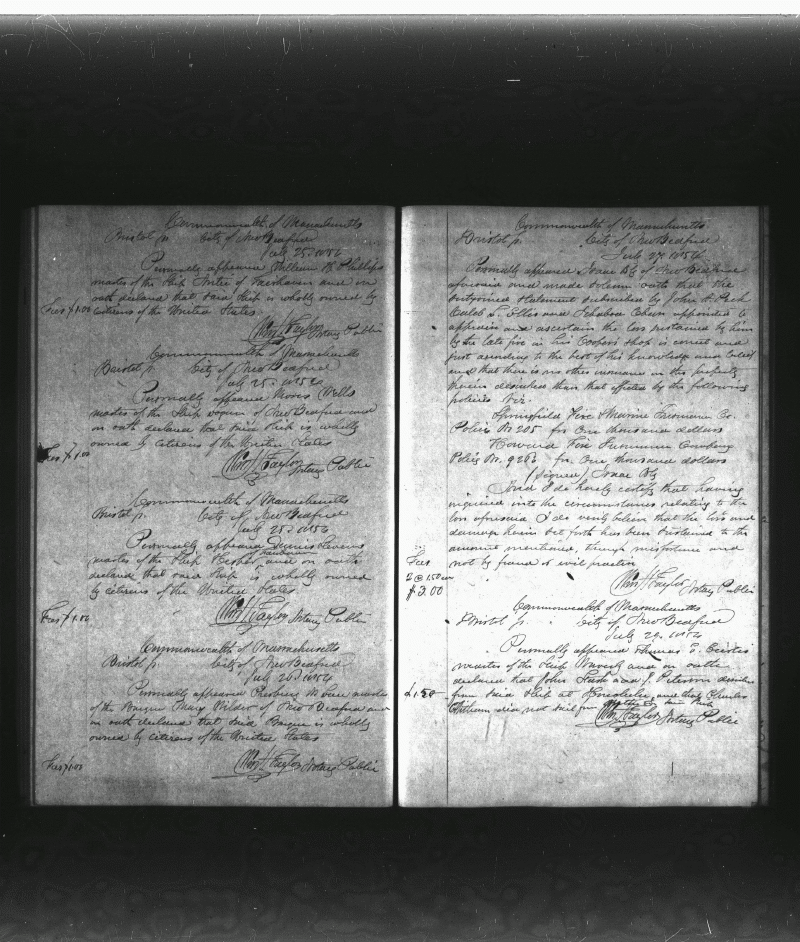 Commonwealth of Massachusetts
Bristol ss. City of New Bedford
July 25. 1856
Personally appeared William H. Phillips
master of the Ship of Fairhaven and on
oath declared that said Ship is wholly owned by
Fees $1.00 citizens of the United States
Wm H Taylor Notary Public
Commonwealth of Massachusetts
Bristol ss. City of New Bedford
July 25. 1856
Personally appeared Moses
master of the Ship of New Bedford and
on oath declared that said Ship is wholly
Fees $1.00 owned by citizens of the United States
Wm H Taylor Notary Public
Commonwealth of Massachusetts
Bristol ss. City of New Bedford
July 25. 1856
Personally appeared Dennis
master of the Ship and on oath
declared that said Ship is wholly owned
by citizens of the United States
Fees $1.00 Wm H Taylor Notary Public
Commonwealth of Massachusetts
Bristol ss. City of New Bedford
July 26. 1856
Personally appeared master
of the Barque Mary Wilder of New Bedford and
on oath declared that said Barque is wholly
owned by citizens of the United States
Fees $1.00 Wm H Taylor Notary Public
Commonwealth of Massachusetts
Bristol ss. City of New Bedford
July 27. 1856
Personally appeared Isaac Bly of New Bedford
aforesaid and made solemn oath that the
outjoined statement subscribed by John A.
Caleb L. Ellis and appointed to
appraise and ascertain the loss sustained by him
by the late fire in his Coopers shop is correct and
just according to the best of his knowledge and belief
and that there is no other insurance on the property
therein described than that effected by the following
policies viz.
Springfield Fire & Marine Insurance Co.
Policy No. 205 for One thousand dollars
Howard Fire Insurance Company
Policy No. for One thousand dollars
(signed) Isaac Bly
And I do hereby certify that having
inquired into the circumstances relating to the
loss aforesaid I do verily believe that the loss and
damage herein set forth has been sustained to the
amount mentioned, through misfortune and
Fees not by fraud or evil practice
2 @ 1.50
$3.00 Wm H Taylor Notary Public
Commonwealth of Massachusetts
Bristol ss. City of New Bedford
July 29. 1856
Personally appeared Thomas
master of the Ship Waverly and on oath
declared that John and J. Peterson
$1.50 from said Ship at Honolulu, and that Charles
did not sail
Wm H Taylor Notary Public